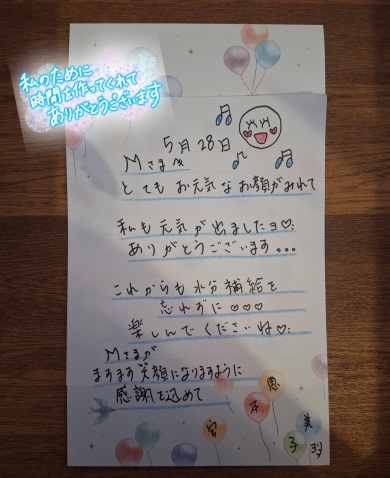 私のために
時間を作ってくれて
ありがとうございます
5月28日
Mさまへ
とてもお元気なお顔がみれて
私も元気が出ましたヨ♡
ありがとうございます...
これからも水分補給を
忘れずに♡♡♡
楽しんでくださいね♡
Mさまが
ますます笑顔になりますように
感謝を込めて
宮本恵子